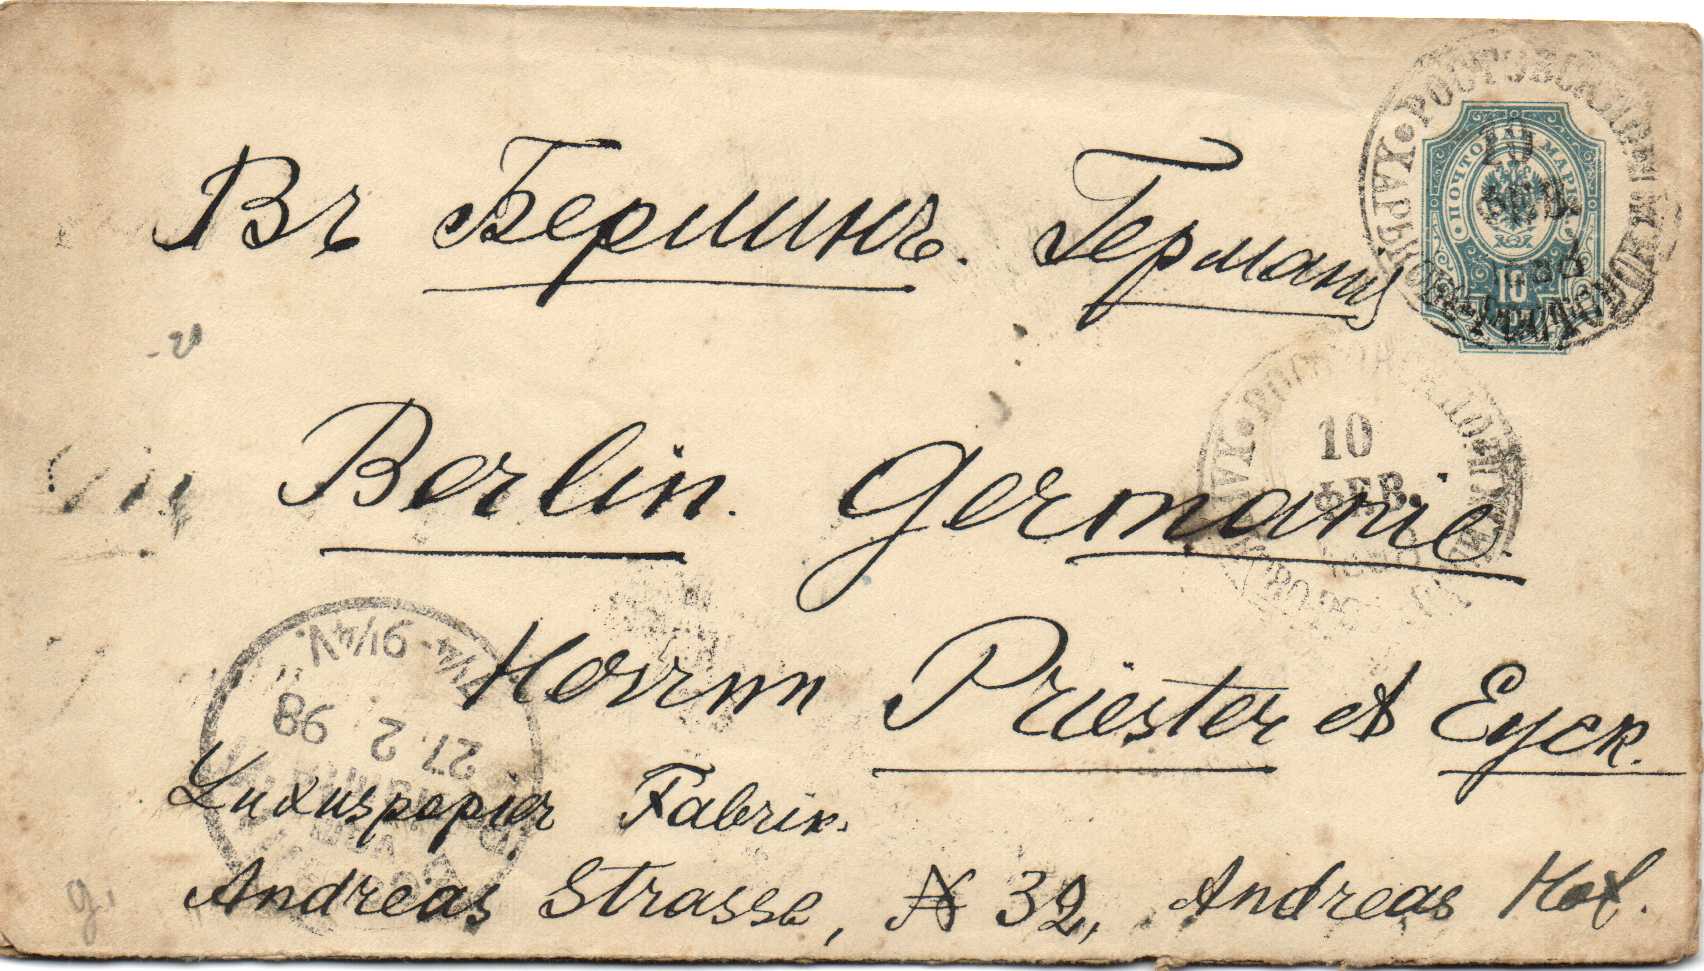 Въ Берлинъ. Германія
Berlin. Germanie.
Herrnn Priester et Eyck.
Luxuspapier Fabrik.
Andreas Strasse, № 32, Andreas Hof.
ПОЧТОВ МАРКА
10
10
ФЕВ.
10
ФЕВ.
27. 2. 98
7¼-9¼V.